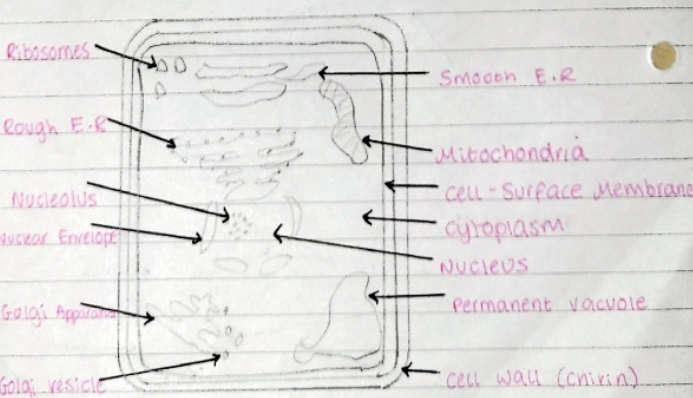 Ribosomes
Rough E.R
Nucleolus
Nuclear Envelope
Golgi Apparatus
Golgi vesicle
Smooth E.R
Mitochondria
Cell-Surface Membrane
Cytoplasm
Nucleus
Permanent vacuole
Cell wall (chitin)